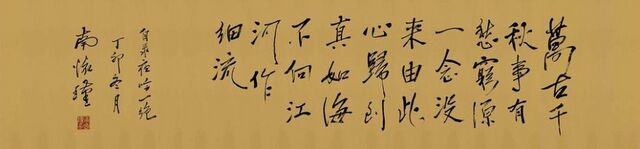 萬古千
秋事有
愁窮源
一念没
来由此
心歸到
真如海
不向江
河作
细流
一絕
丁卯冬月
南懷瑾